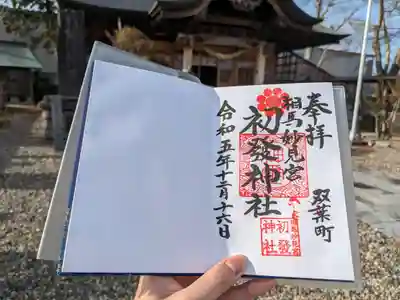 奉拝
双葉町
相馬妙見宮
初發神社
令和五年十二月十六日
初發
神社